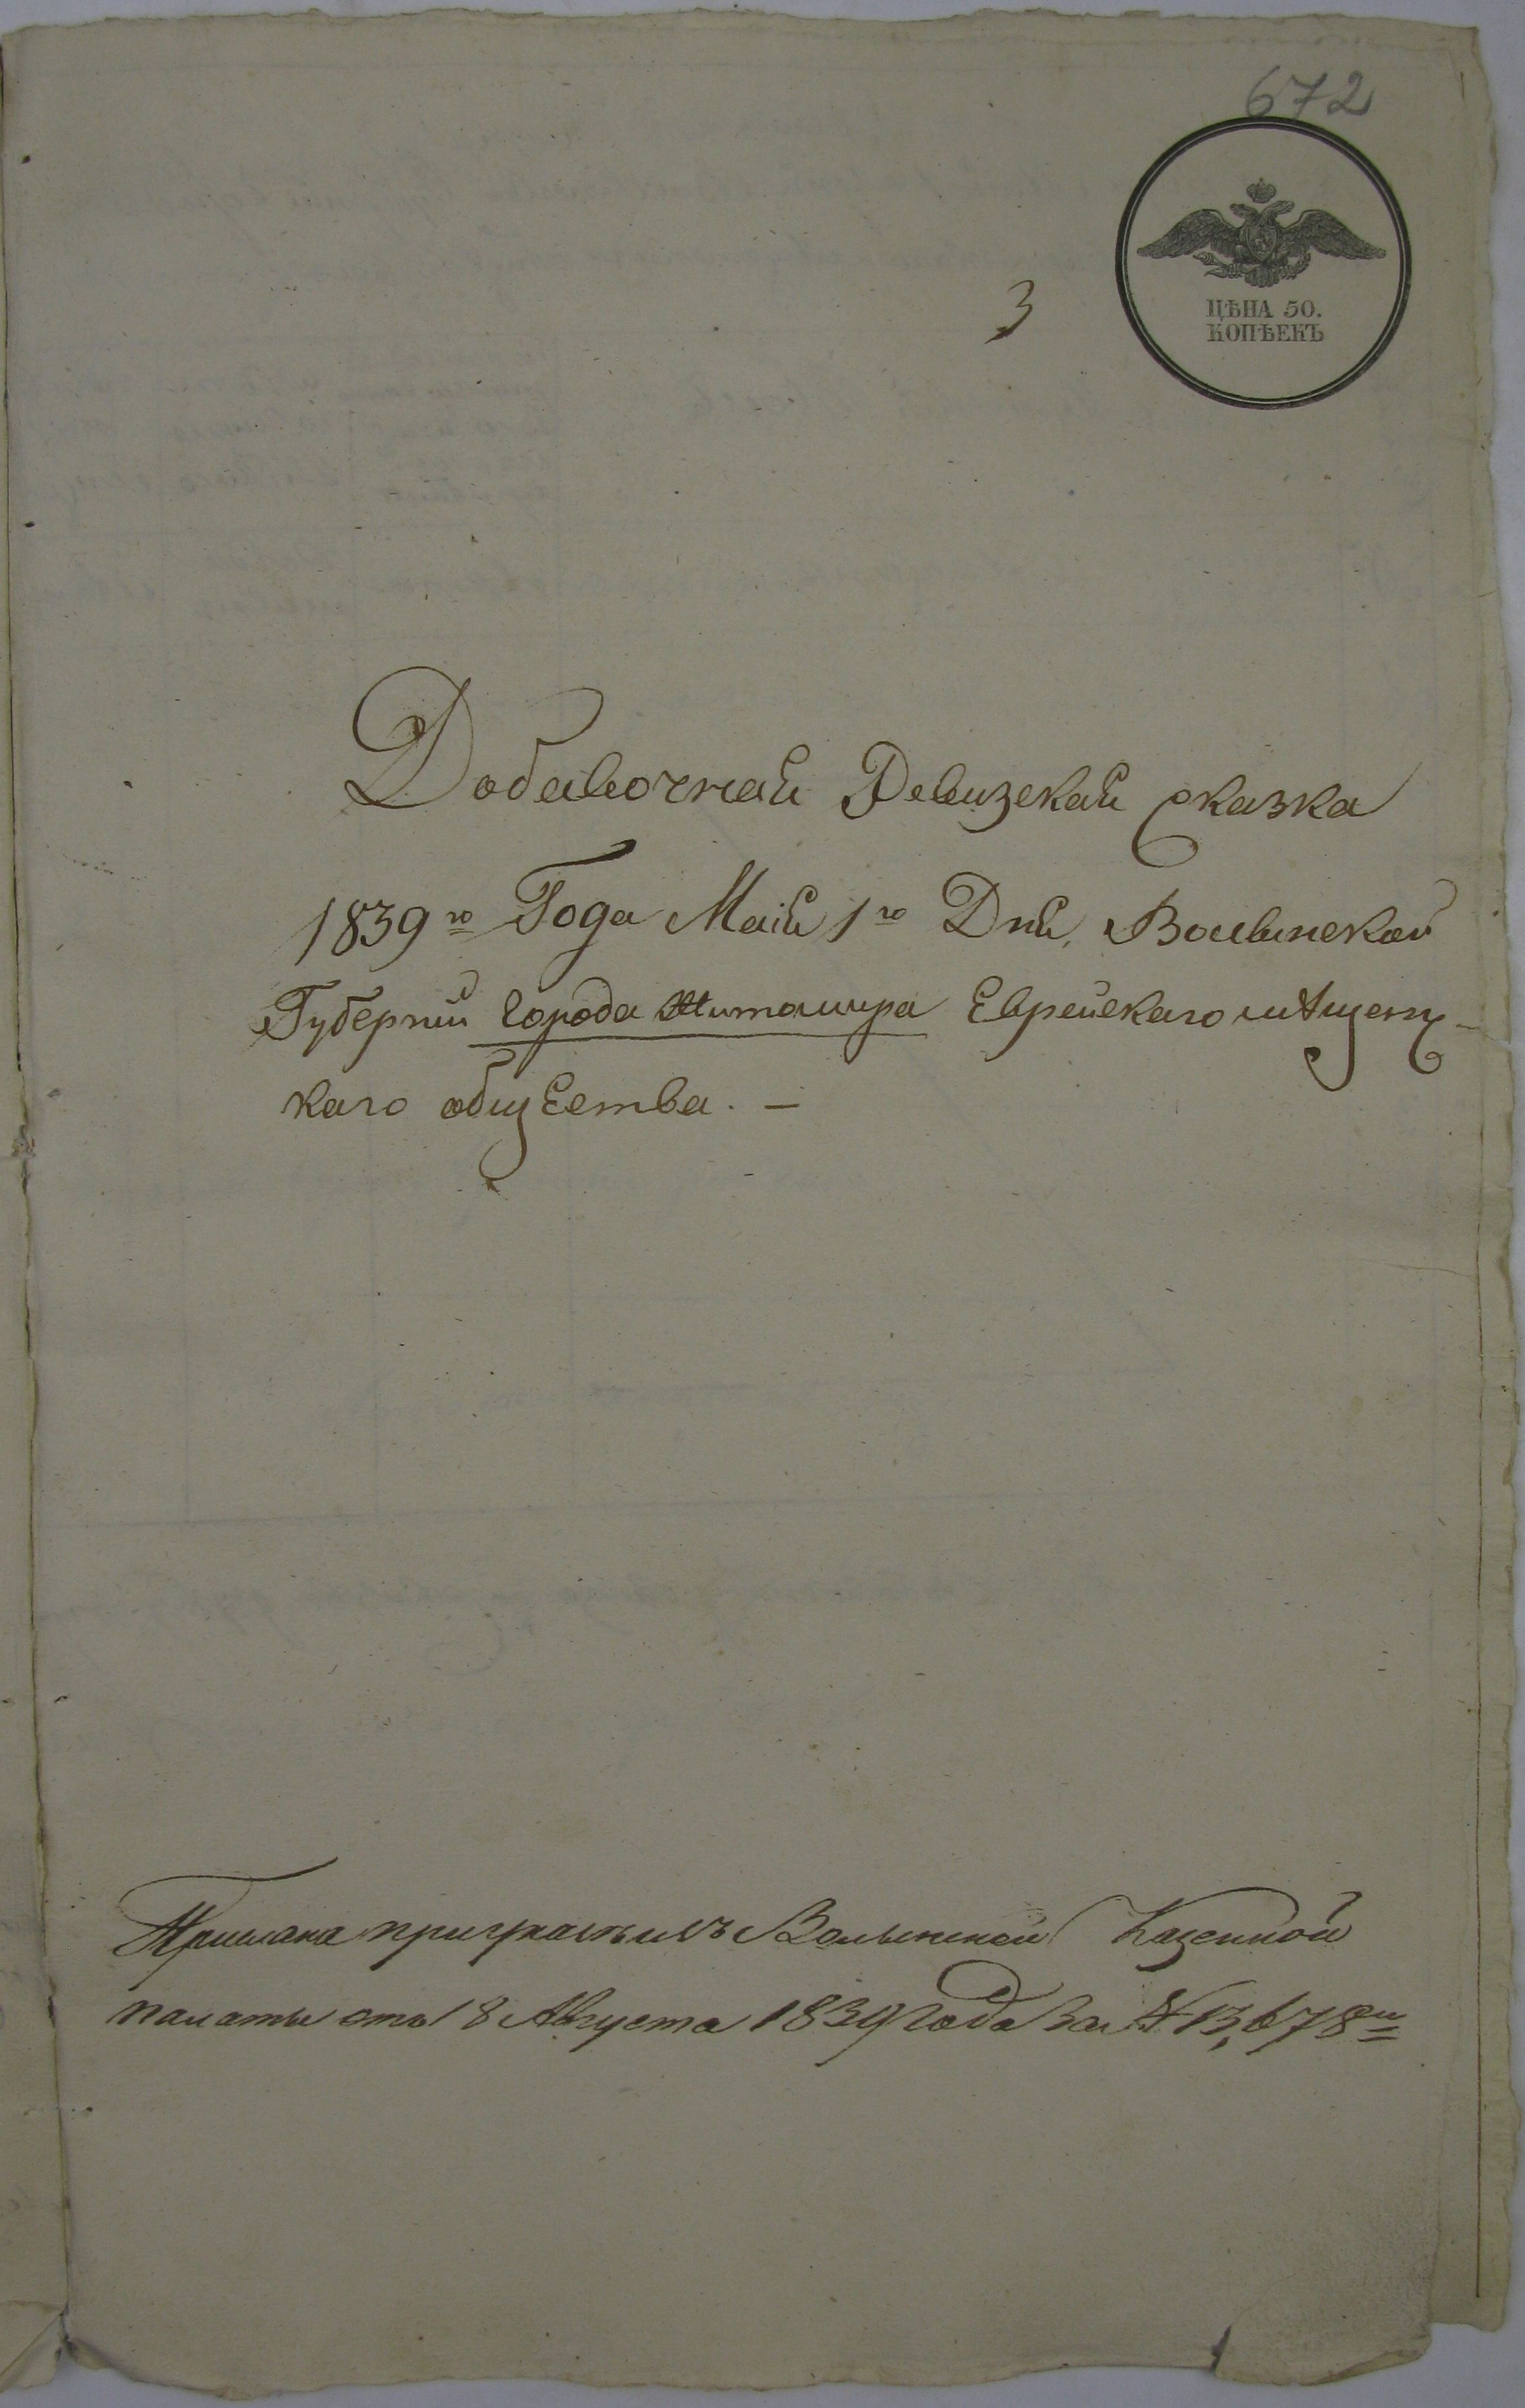 672
ЦѢНА 50.
КОПѢЕКЪ
3
Добавочная Ревизская сказка
1839го Года Маія 1го Дня, Волынской
Губерніи города Житомира Еврейскаго мѣщенс-
каго общества. —
Прислана при указѣ изъ Волынской Казенной
палаты отъ 18 Августа 1839 года за № 13,678м